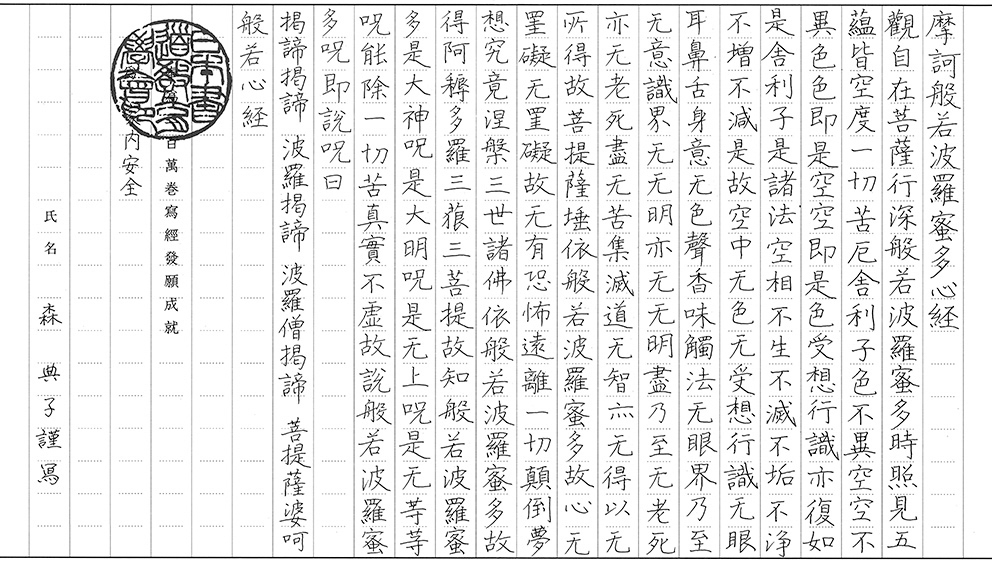 摩訶般若波羅蜜多心経
觀自在菩薩行深般若波羅蜜多時照見五
蘊皆空度一切苦厄舎利子色不異空空不
異色色即是空空即是色受想行識亦復如
是舎利子是諸法空相不生不滅不垢不浄
不増不減是故空中无色无受想行識无眼
耳鼻舌身意无色聲香味觸法无眼界乃至
无意識界无无明亦无无明盡乃至无老死
亦无老死盡无苦集滅道无智亦无得以无
所得故菩提薩埵依般若波羅蜜多故心无
罣礙无罣礙故无有恐怖遠離一切顛倒夢
想究竟涅槃三世諸佛依般若波羅蜜多故
得阿耨多羅三藐三菩提故知般若波羅蜜
多是大神呪是大明呪是无上呪是无等等
呪能除一切苦真實不虚故説般若波羅蜜
多呪即説呪曰
揭諦揭諦 波羅揭諦 波羅僧揭諦 菩提薩婆呵
般若心経
百萬巻寫經發願成就
内安全
氏名 森 典子謹寫